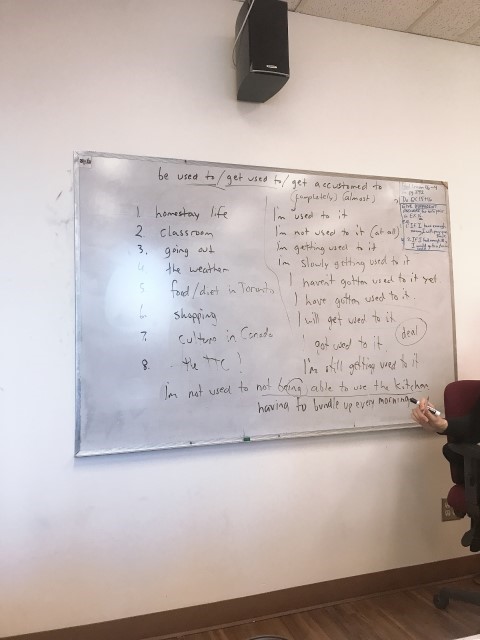 be used to/get used to/get accustomed to
(completely) (almost)
1. homestay life
2 classroom
3. going out
4 the weather
5 food/diet in Toronto
6 shopping
7. culture in Canada
8. the TTC!
I'm used to it
I'm not used to it (at all)
I'm getting used to it
I'm slowly getting used to it
I haven't gotten used to it yet
I have gotten used to it.
I will get used to it
I got used to it.
deal
I'm still getting used to it
I'm not used to not being able to use the kitchen
having to bundle up every morning